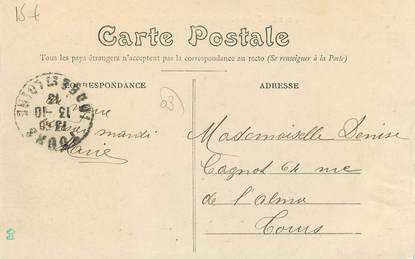 15 €
Carte Postale
Tous les pays étrangers n'acceptent pas la correspondance au recto (Se renseigner à la Poste)
CORRESPONDANCE
ADRESSE
03
13-10
mardi
Marie
Mademoiselle Denise
Cagnot 64 rue
de l'alma
Tours